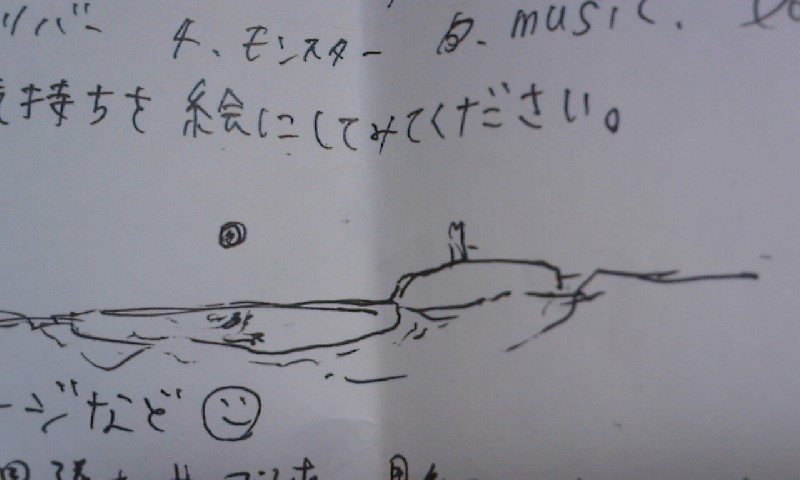 ツバー 4. モンスター 5. music.
気持ちを絵にしてみてください。
ージなど